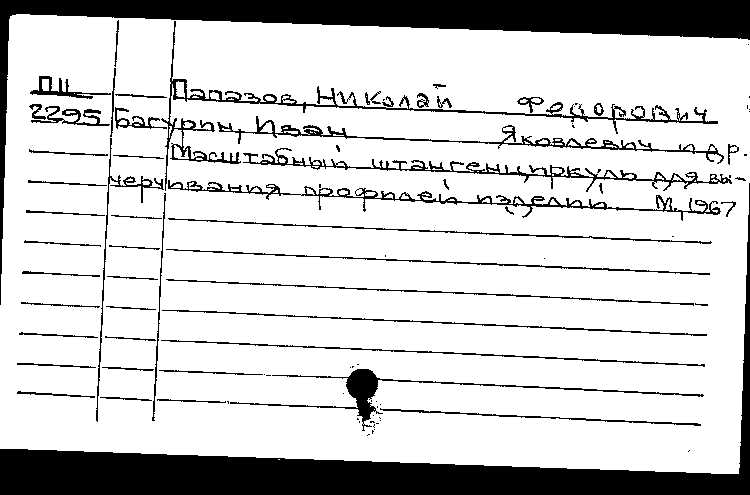 ПII Папазов, Николай Федорович
2295 Багурин, Иван Яковлевич и др.
Масштабный штангенциркуль для вы-
черчивания профилей изделий. М., 1967